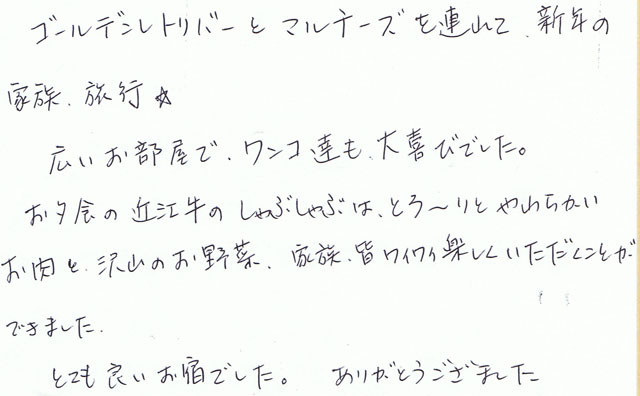 ゴールデンレトリバーと マルチーズを連れて、新年の
家族、旅行☆
広いお部屋で、ワンコ達も、大喜びでした。
お夕食の近江牛のしゃぶしゃぶは、とろ〜りとやわらかい
お肉と、沢山のお野菜、家族、皆ワイワイ楽しくいただくことが
できました。
とても良いお宿でした。 ありがとうございました